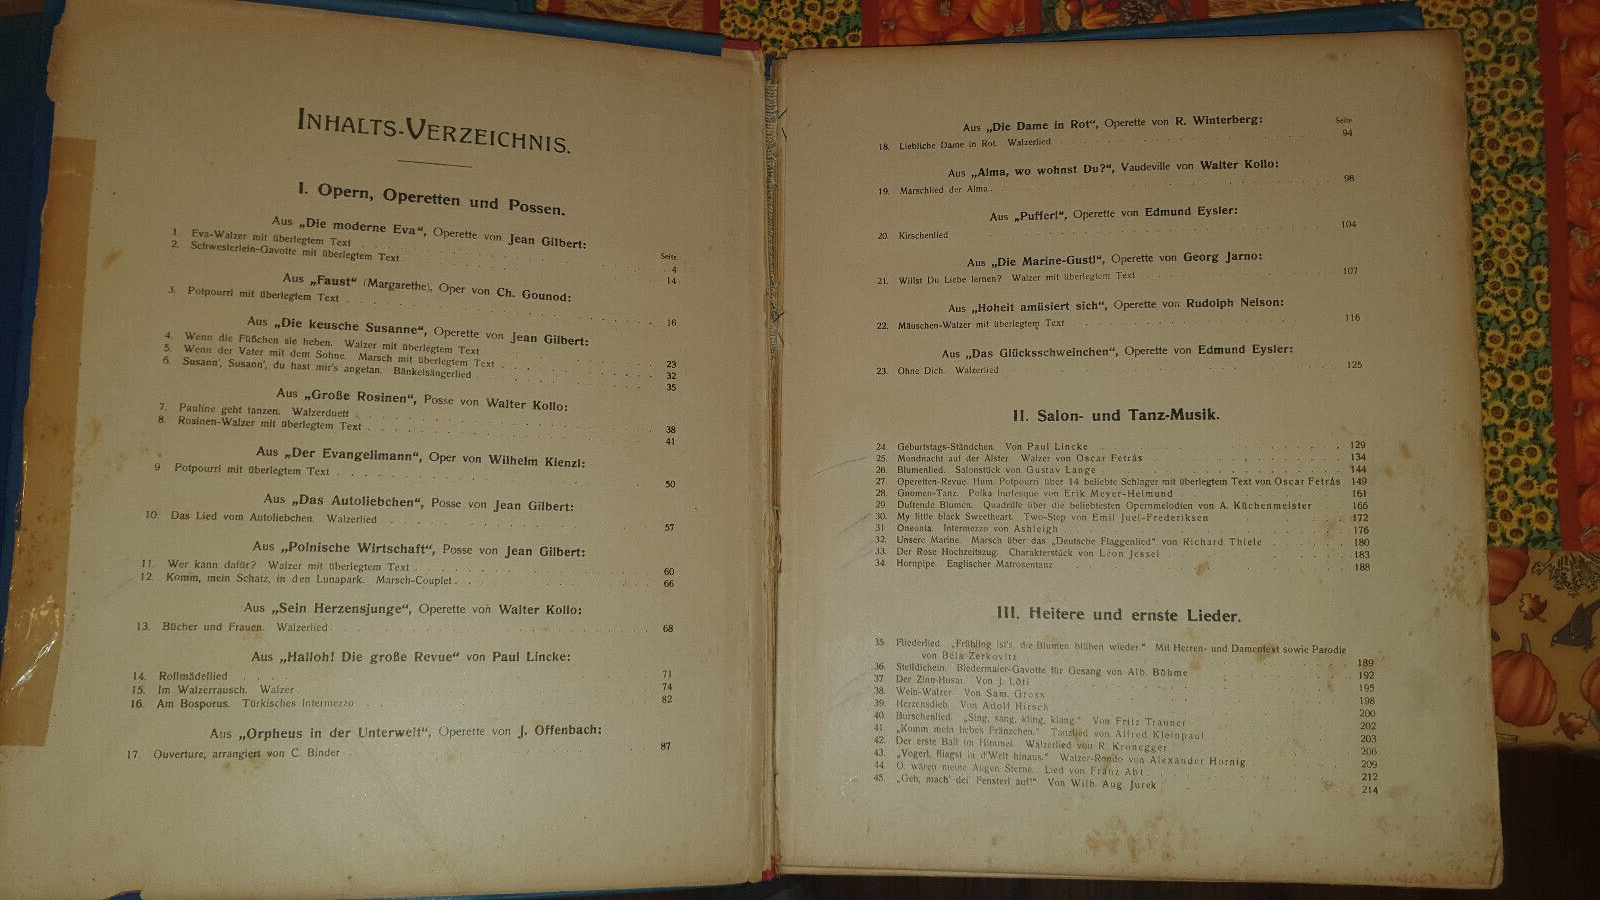 INHALTS-VERZEICHNIS.
I. Opern, Operetten und Possen.
Aus „Die moderne Eva“, Operette von Jean Gilbert:
Seite
1. Eva-Walzer mit überlegtem Text 4
2. Schwesterlein-Gavotte mit überlegtem Text 14
Aus „Faust“ (Margarethe), Oper von Ch. Gounod:
3. Potpourri mit überlegtem Text 16
Aus „Die keusche Susanne“, Operette von Jean Gilbert:
4. Wenn die Füßchen sie heben. Walzer mit überlegtem Text 23
5. Wenn der Vater mit dem Sohne. Marsch mit überlegtem Text 32
6. Susann', Susann', du hast mir's angetan. Bänkelsängerlied 35
Aus „Große Rosinen“, Posse von Walter Kollo:
7. Pauline geht tanzen. Walzerduett 38
8. Rosinen-Walzer mit überlegtem Text 41
Aus „Der Evangelimann“, Oper von Wilhelm Kienzl:
9 Potpourri mit überlegtem Text 50
Aus „Das Autoliebchen“, Posse von Jean Gilbert:
10. Das Lied vom Autoliebchen. Walzerlied 57
Aus „Polnische Wirtschaft“, Posse von Jean Gilbert:
11. Wer kann dafür? Walzer mit überlegtem Text 60
12. Komm, mein Schatz, in den Lunapark. Marsch-Couplet 66
Aus „Sein Herzensjunge“, Operette von Walter Kollo:
13. Bücher und Frauen. Walzerlied 68
Aus „Halloh! Die große Revue“ von Paul Lincke:
14. Rollmädellied 71
15. Im Walzerrausch. Walzer 74
16. Am Bosporus. Türkisches Intermezzo 82
Aus „Orpheus in der Unterwelt“, Operette von J. Offenbach:
17. Ouverture, arrangiert von C. Binder 87
Aus „Die Dame in Rot“, Operette von R. Winterberg:
Seite
18. Liebliche Dame in Rot. Walzerlied 94
Aus „Alma, wo wohnst Du?“, Vaudeville von Walter Kollo:
19. Marschlied der Alma 98
Aus „Pufferl“, Operette von Edmund Eysler:
20. Kirschenlied 104
Aus „Die Marine-Gustl“, Operette von Georg Jarno:
21. Willst Du Liebe lernen? Walzer mit überlegtem Text 107
Aus „Hoheit amüsiert sich“, Operette von Rudolph Nelson:
22. Mäuschen-Walzer mit überlegtem Text 116
Aus „Das Glücksschweinchen“, Operette von Edmund Eysler:
23. Ohne Dich. Walzerlied 125
II. Salon- und Tanz-Musik.
24. Geburtstags-Ständchen. Von Paul Lincke 129
25. Mondnacht auf der Alster. Walzer von Oscar Fetrás 134
26. Blumenlied. Salonstück von Gustav Lange 144
27. Operetten-Revue. Hum. Potpourri über 14 beliebte Schlager mit überlegtem Text von Oscar Fetrás 149
28. Gnomen-Tanz. Polka burlesque von Erik Meyer-Helmund 161
29. Duftende Blumen. Quadrille über die beliebtesten Opernmelodien von A. Küchenmeister 166
30. My little black Sweetheart. Two-Step von Emil Juel-Frederiksen 172
31 Oneonta. Intermezzo von Ashleigh 176
32. Unsere Marine. Marsch über das „Deutsche Flaggenlied“ von Richard Thiele 180
33. Der Rose Hochzeitszug. Charakterstück von Léon Jessel 183
34. Hornpipe. Englischer Matrosentanz 188
III. Heitere und ernste Lieder.
35. Fliederlied. „Frühling ist's, die Blumen blühen wieder“ Mit Herren- und Damentext sowie Parodie
von Béla Zerkovitz 189
36. Stelldichein. Biedermaier-Gavotte für Gesang von Alb. Böhme 192
37. Der Zinn-Husar. Von J. Löti 195
38. Wein-Walzer. Von Sam. Gross 198
39. Herzensdieb. Von Adolf Hirsch 200
40. Burschenlied. „Sing, sang, kling, klang.“ Von Fritz Trauner 202
41. „Komm mein liebes Fränzchen.“ Tanzlied von Alfred Kleinpaul 203
42. Der erste Ball im Himmel. Walzerlied von R. Kronegger 206
43. „Vogerl, fliagst in d'Welt hinaus.“ Walzer-Rondo von Alexander Hornig 209
44. O, wären meine Augen Sterne. Lied von Franz Abt 212
45. „Geh, mach' dei' Fensterl auf!“ Von Wilh. Aug. Jurek 214